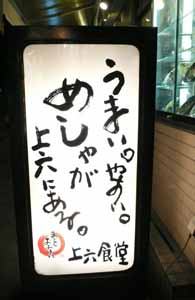 うまい。やすい。
めしやが
上六にある。
上六食堂